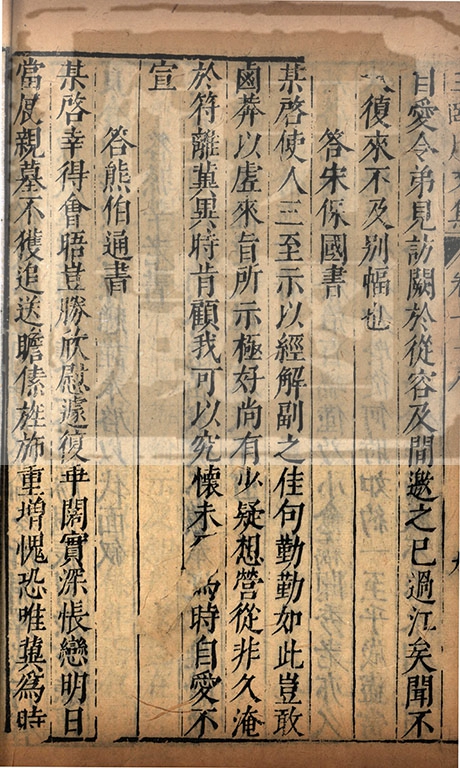 自愛令弟見訪闕於從容及間邀之已過江矣聞不
復來不及別幅也
答朱保國書
某啓使人三至示以經解副之佳句勤勤如此豈敢
鹵莽以虛來旨所示極好尚有少疑想營從非久淹
於符離冀異時肯顧我可以究懷未 爲時自愛不
宣
答熊伯通書
某啓幸得會晤豈勝欣慰遽復乖闊實深悵戀明日
當展親墓不獲追送瞻傃旌斾重增愧恐唯冀爲時